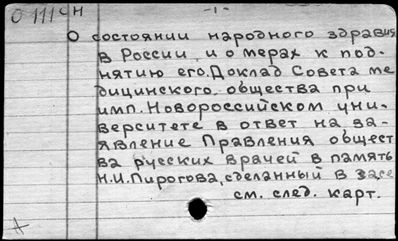 О 111 сн
-1-
О состоянии народного здравия
в России и о мерах к под-
нятию его. Доклад Совета ме
дицинского общества при
имп. Новороссийском уни-
верситете в ответ на за-
явление Правления общест
ва русских врачей в память
Н.И. Пирогова, сделанный в засе
см. след. карт.